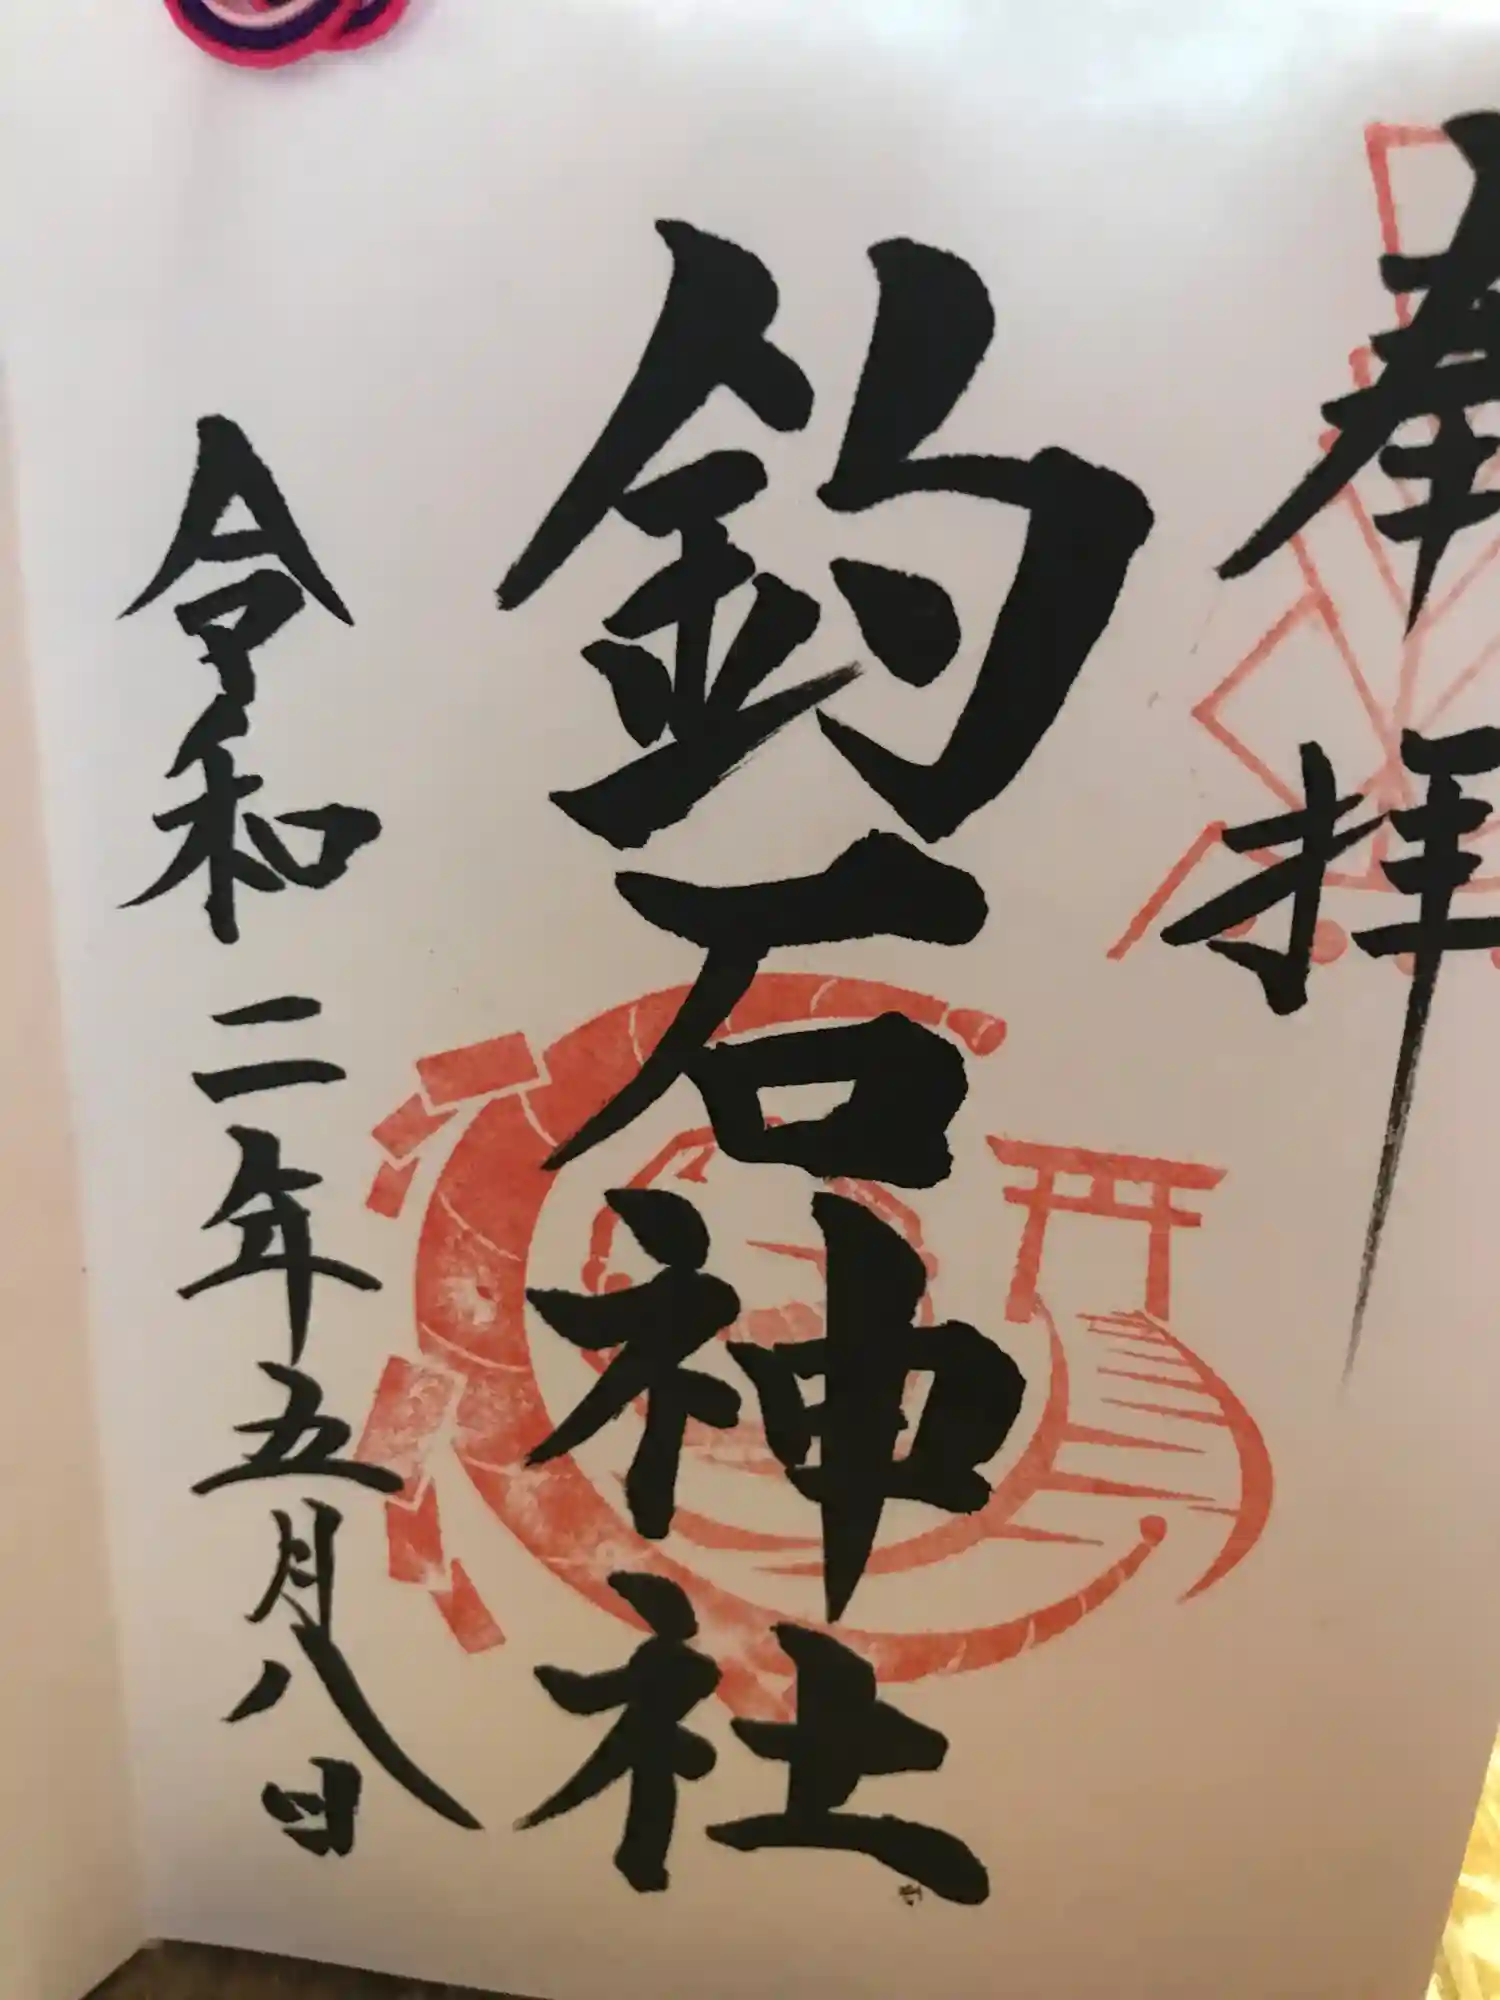 奉拝
釣石神社
令和二年五月八日